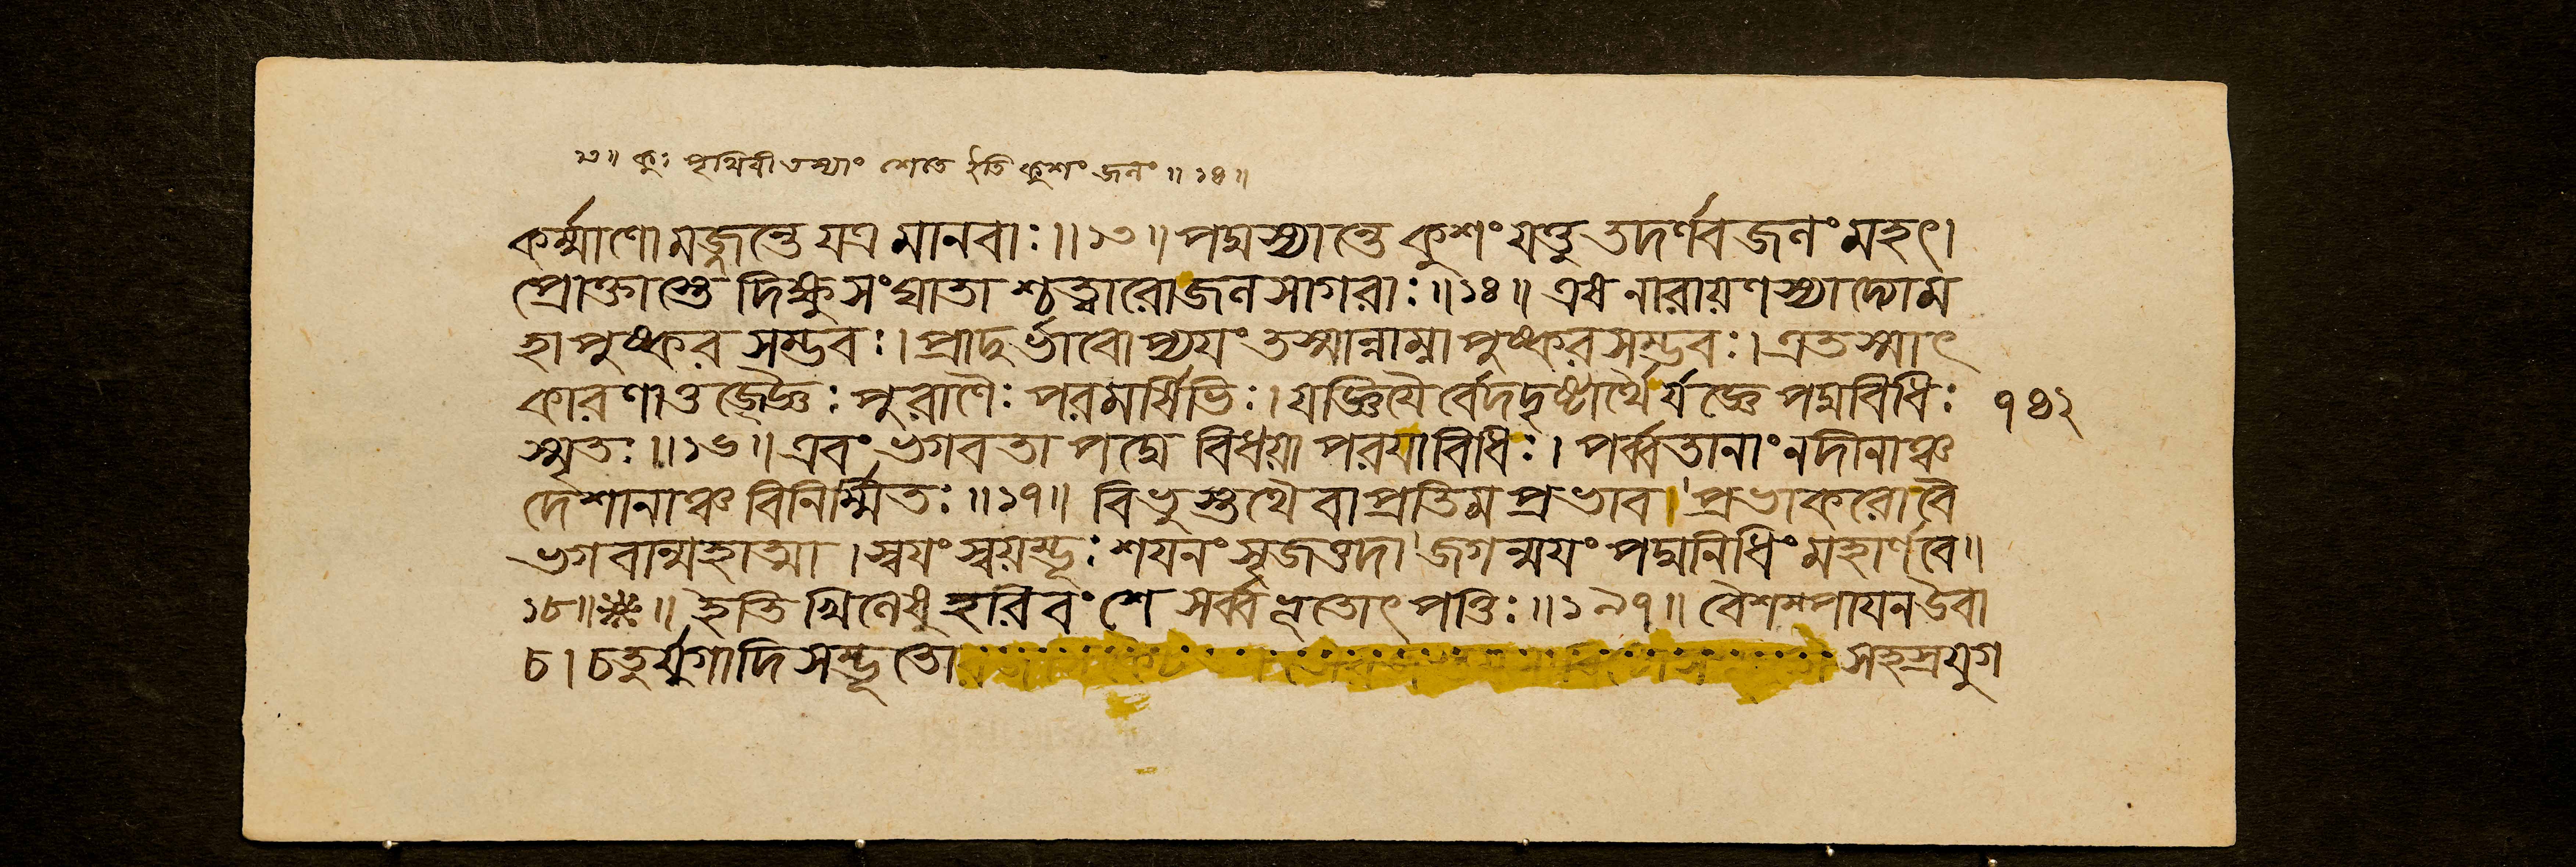 ১৩॥ কুঃ পৃথিবী তস্যাং শেতে ইতি কুশং জলং ॥ ১৪ ॥
কর্ম্মাণো মজ্জন্তে যত্র মানবাঃ ॥ ১৩ ॥ পদ্মস্যান্তে কুশং যত্তু তদর্ণবজলং মহৎ ।
প্রোক্তাস্তে দিক্ষু সংঘাতা শ্চত্বারো জলসাগরাঃ ॥ ১৪ ॥ এষ নারায়ণস্যাদ্যো ম
হাপুষ্করসম্ভবঃ । প্রাদুর্ভাবোপ্যয়ং তস্মান্নাম্না পুষ্করসম্ভবঃ । এতস্মাৎ
কারণাত্তজ্জ্ঞৈঃ পুরাণৈঃ পরমর্ষিভিঃ । যজ্ঞিয়ৈর্বেদদৃষ্টার্থৈর্যজ্ঞে পদ্মবিধিঃ
১৪২
স্মৃতঃ ॥ ১৬ ॥ এবং ভগবতা পদ্মে বিধয়া পরয়া বিধিঃ । পর্ব্বতানাং নদীনাঞ্চ
দেশানাঞ্চ বিনির্ম্মিতঃ ॥ ১৭ ॥ বিভুস্তথৈবাপ্রতিমপ্রভাব । প্রভাকরো বৈ
ভগবান্মহাত্মা । স্বয়ং স্বয়ম্ভূঃ শয়নং সৃজত্তদা জগন্ময়ং পদ্মনিধিং মহার্ণবে ॥
১৮ ॥ ॥ ইতি খিলেষু হরিবংশে সর্ব্বভূতোৎপত্তিঃ ॥ ১৯৭ ॥ বৈশম্পায়ন উবা
চ । চতুর্যুগাদিসম্ভূতো সহস্রযুগ